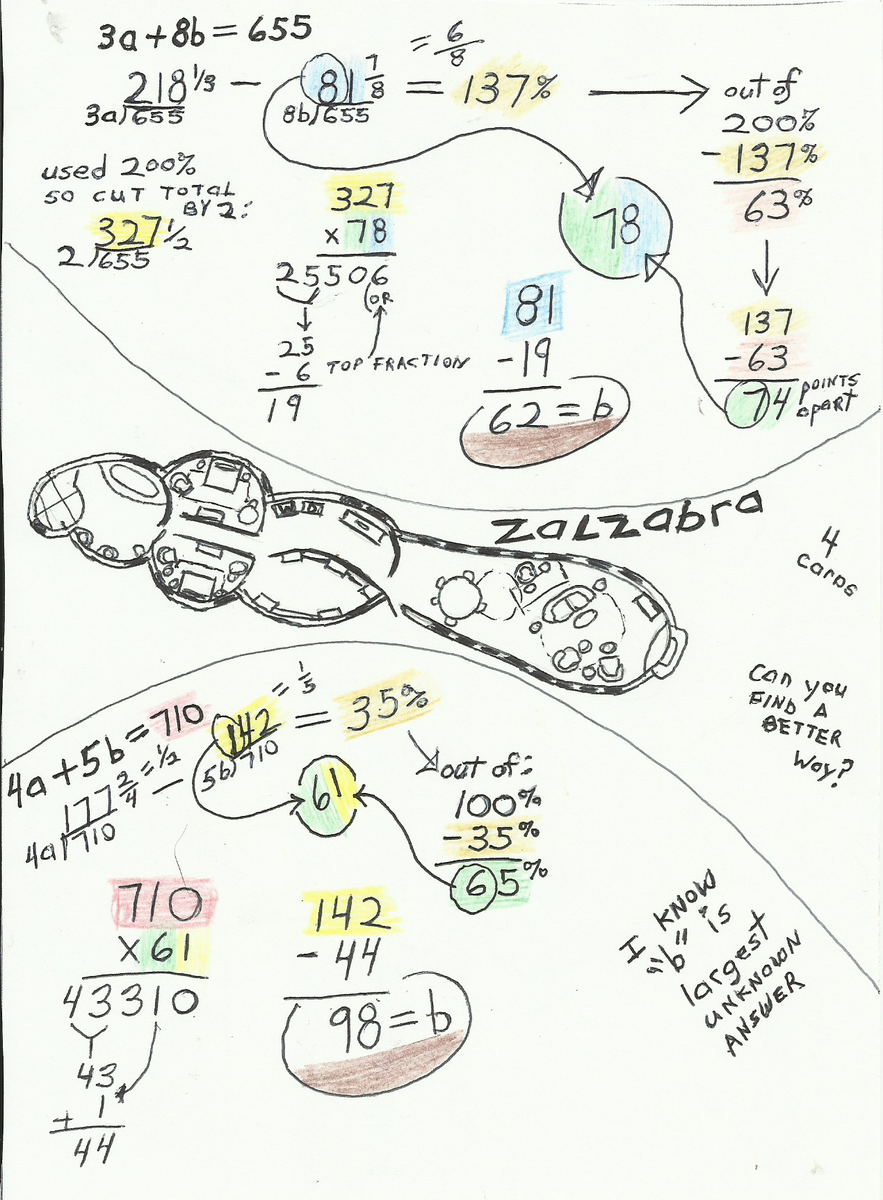 3a+8b=655
218 1/3 − 81 7/8 = 6/8 = 137%
3a)655
8b)655
out of
200%
-137%
63%
used 200%
SO CUT TOTAL
BY 2:
327 1/2
2)655
327
x 78
25506
(OR
25
- 6
19
TOP FRACTION
78
81
-19
62=b
137
-63
74 POINTS
apart
ZALZabra
4
caros
Can you
FIND A
BETTER
Way?
4a+5b=710
177 2/4 =1/2 − 142 = 1/5 = 35%
4a)710
5b)710
out of:
100%
-35%
65%
61
710
x61
43310
43
+ 1
44
142
- 44
98=b
I KNOW
"b" is
largest
UNKNOWN
ANSWER